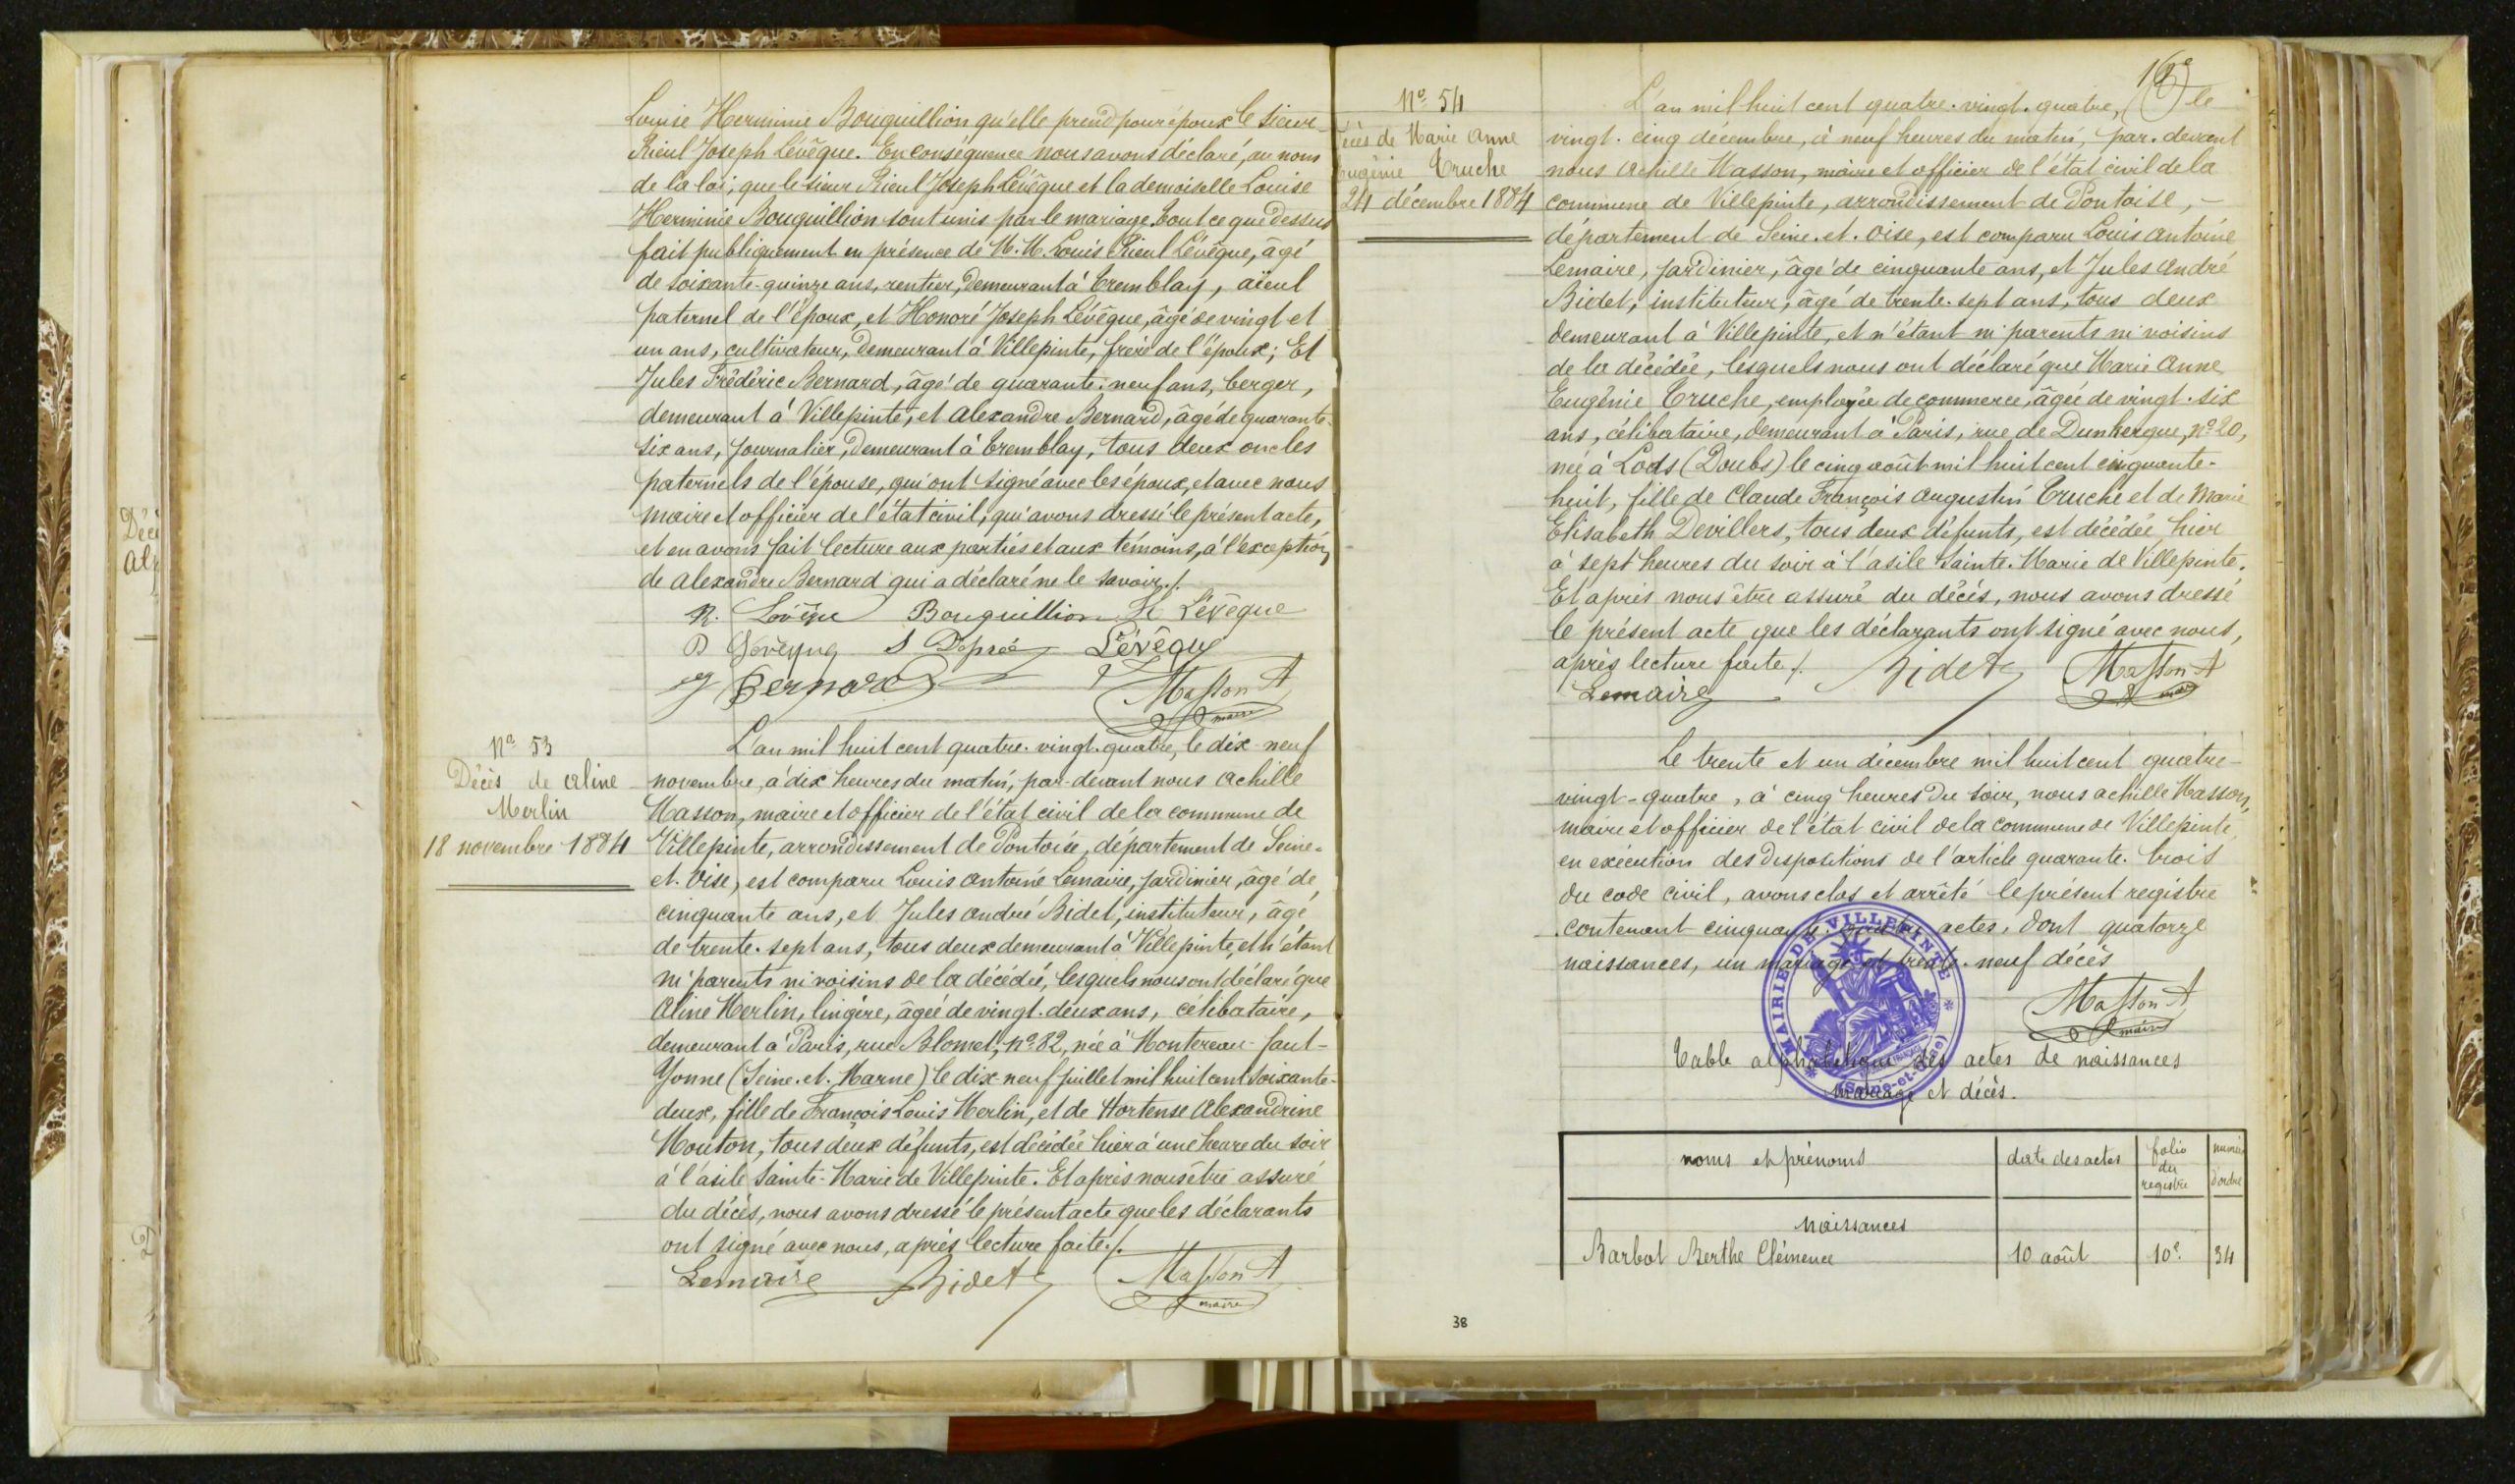 Louise Herminie Bouquillion qu'elle prend pour époux le sieur
Rieul Joseph Lévêque. En conséquence nous avons déclaré, au nom
de la loi, que le sieur Rieul Joseph Lévêque et la demoiselle Louise
Herminie Bouquillion sont unis par le mariage. Tout ce que dessus
fait publiquement en présence de M.M. Louis Rieul Lévêque, âgé
de soixante-quinze ans, rentier, demeurant à Tremblay, aïeul
paternel de l'époux, et Honoré Joseph Lévêque, âgé de vingt et
un ans, cultivateur, demeurant à Villepinte, frère de l'époux; Et
Jules Frédéric Bernard, âgé de quarante-neuf ans, berger,
demeurant à Villepinte, et Alexandre Bernard, âgé de quarante-
six ans, journalier, demeurant à Tremblay, tous deux oncles
paternels de l'épouse, qui ont signé avec les époux, et avec nous
maire et officier de l'état civil, qui avons dressé le présent acte,
et en avons fait lecture aux parties et aux témoins, à l'exception
de Alexandre Bernard qui a déclaré ne le savoir./.
R. Lévêque Bouquillion H Lévêque
D Lévêque Lévêque
Bernard Masson A
maire
Nº 53
Décès de Aline
Merlin
18 novembre 1884
L'an mil huit cent quatre-vingt-quatre, le dix-neuf
novembre, à dix heures du matin, par-devant nous Achille
Masson, maire et officier de l'état civil de la commune de
Villepinte, arrondissement de Pontoise, département de Seine-
et-Oise, est comparu Louis Antoine Lemaire, jardinier, âgé de
cinquante ans, et Jules André Bidet, instituteur, âgé
de trente-sept ans, tous deux demeurant à Villepinte, et n'étant
ni parents ni voisins de la décédée, lesquels nous ont déclaré que
Aline Merlin, lingère, âgée de vingt-deux ans, célibataire,
demeurant à Paris, rue Blomet, nº 82, née à Montereau-faut-
Yonne (Seine-et-Marne) le dix-neuf juillet mil huit cent soixante-
deux, fille de François Louis Merlin, et de Hortense Alexandrine
Mouton, tous deux défunts, est décédée hier à une heure du soir
à l'asile Sainte-Marie de Villepinte. Et après nous être assuré
du décès, nous avons dressé le présent acte que les déclarants
ont signé avec nous, après lecture faite./.
Lemaire Bidet Masson A
maire
Nº 54
Décès de Marie Anne
Eugénie Truche
24 décembre 1884
L'an mil huit cent quatre-vingt-quatre, le
vingt-cinq décembre, à neuf heures du matin, par-devant
nous Achille Masson, maire et officier de l'état civil de la
commune de Villepinte, arrondissement de Pontoise,
département de Seine-et-Oise, est comparu Louis Antoine
Lemaire, jardinier, âgé de cinquante ans, et Jules André
Bidet, instituteur, âgé de trente-sept ans, tous deux
demeurant à Villepinte, et n'étant ni parents ni voisins
de la décédée, lesquels nous ont déclaré que Marie Anne
Eugénie Truche, employée de commerce, âgée de vingt-six
ans, célibataire, demeurant à Paris, rue de Dunkerque, nº 20,
née à Lods (Doubs) le cinq août mil huit cent cinquante-
huit, fille de Claude François Augustin Truche et de Marie
Elisabeth Devillers, tous deux défunts, est décédée hier
à sept heures du soir à l'asile Sainte-Marie de Villepinte.
Et après nous être assuré du décès, nous avons dressé
le présent acte que les déclarants ont signé avec nous,
après lecture faite./. Bidet Masson A
Lemaire maire
Le trente et un décembre mil huit cent quatre-
vingt-quatre, à cinq heures du soir, nous Achille Masson,
maire et officier de l'état civil de la commune de Villepinte,
en exécution des dispositions de l'article quarante-trois
du code civil, avons clos et arrêté le présent registre
contenant cinquante-quatre actes, dont quatorze
naissances, un mariage et trente-neuf décès
MAIRIE DE VILLEPINTE
(Seine-et-Oise)
Masson A
maire
Table alphabétique des actes de naissances
mariage et décès.
noms et prénoms date des actes folio du registre numéro d'ordre
Naissances
Barbot Berthe Clémence 10 août 10e 34
38